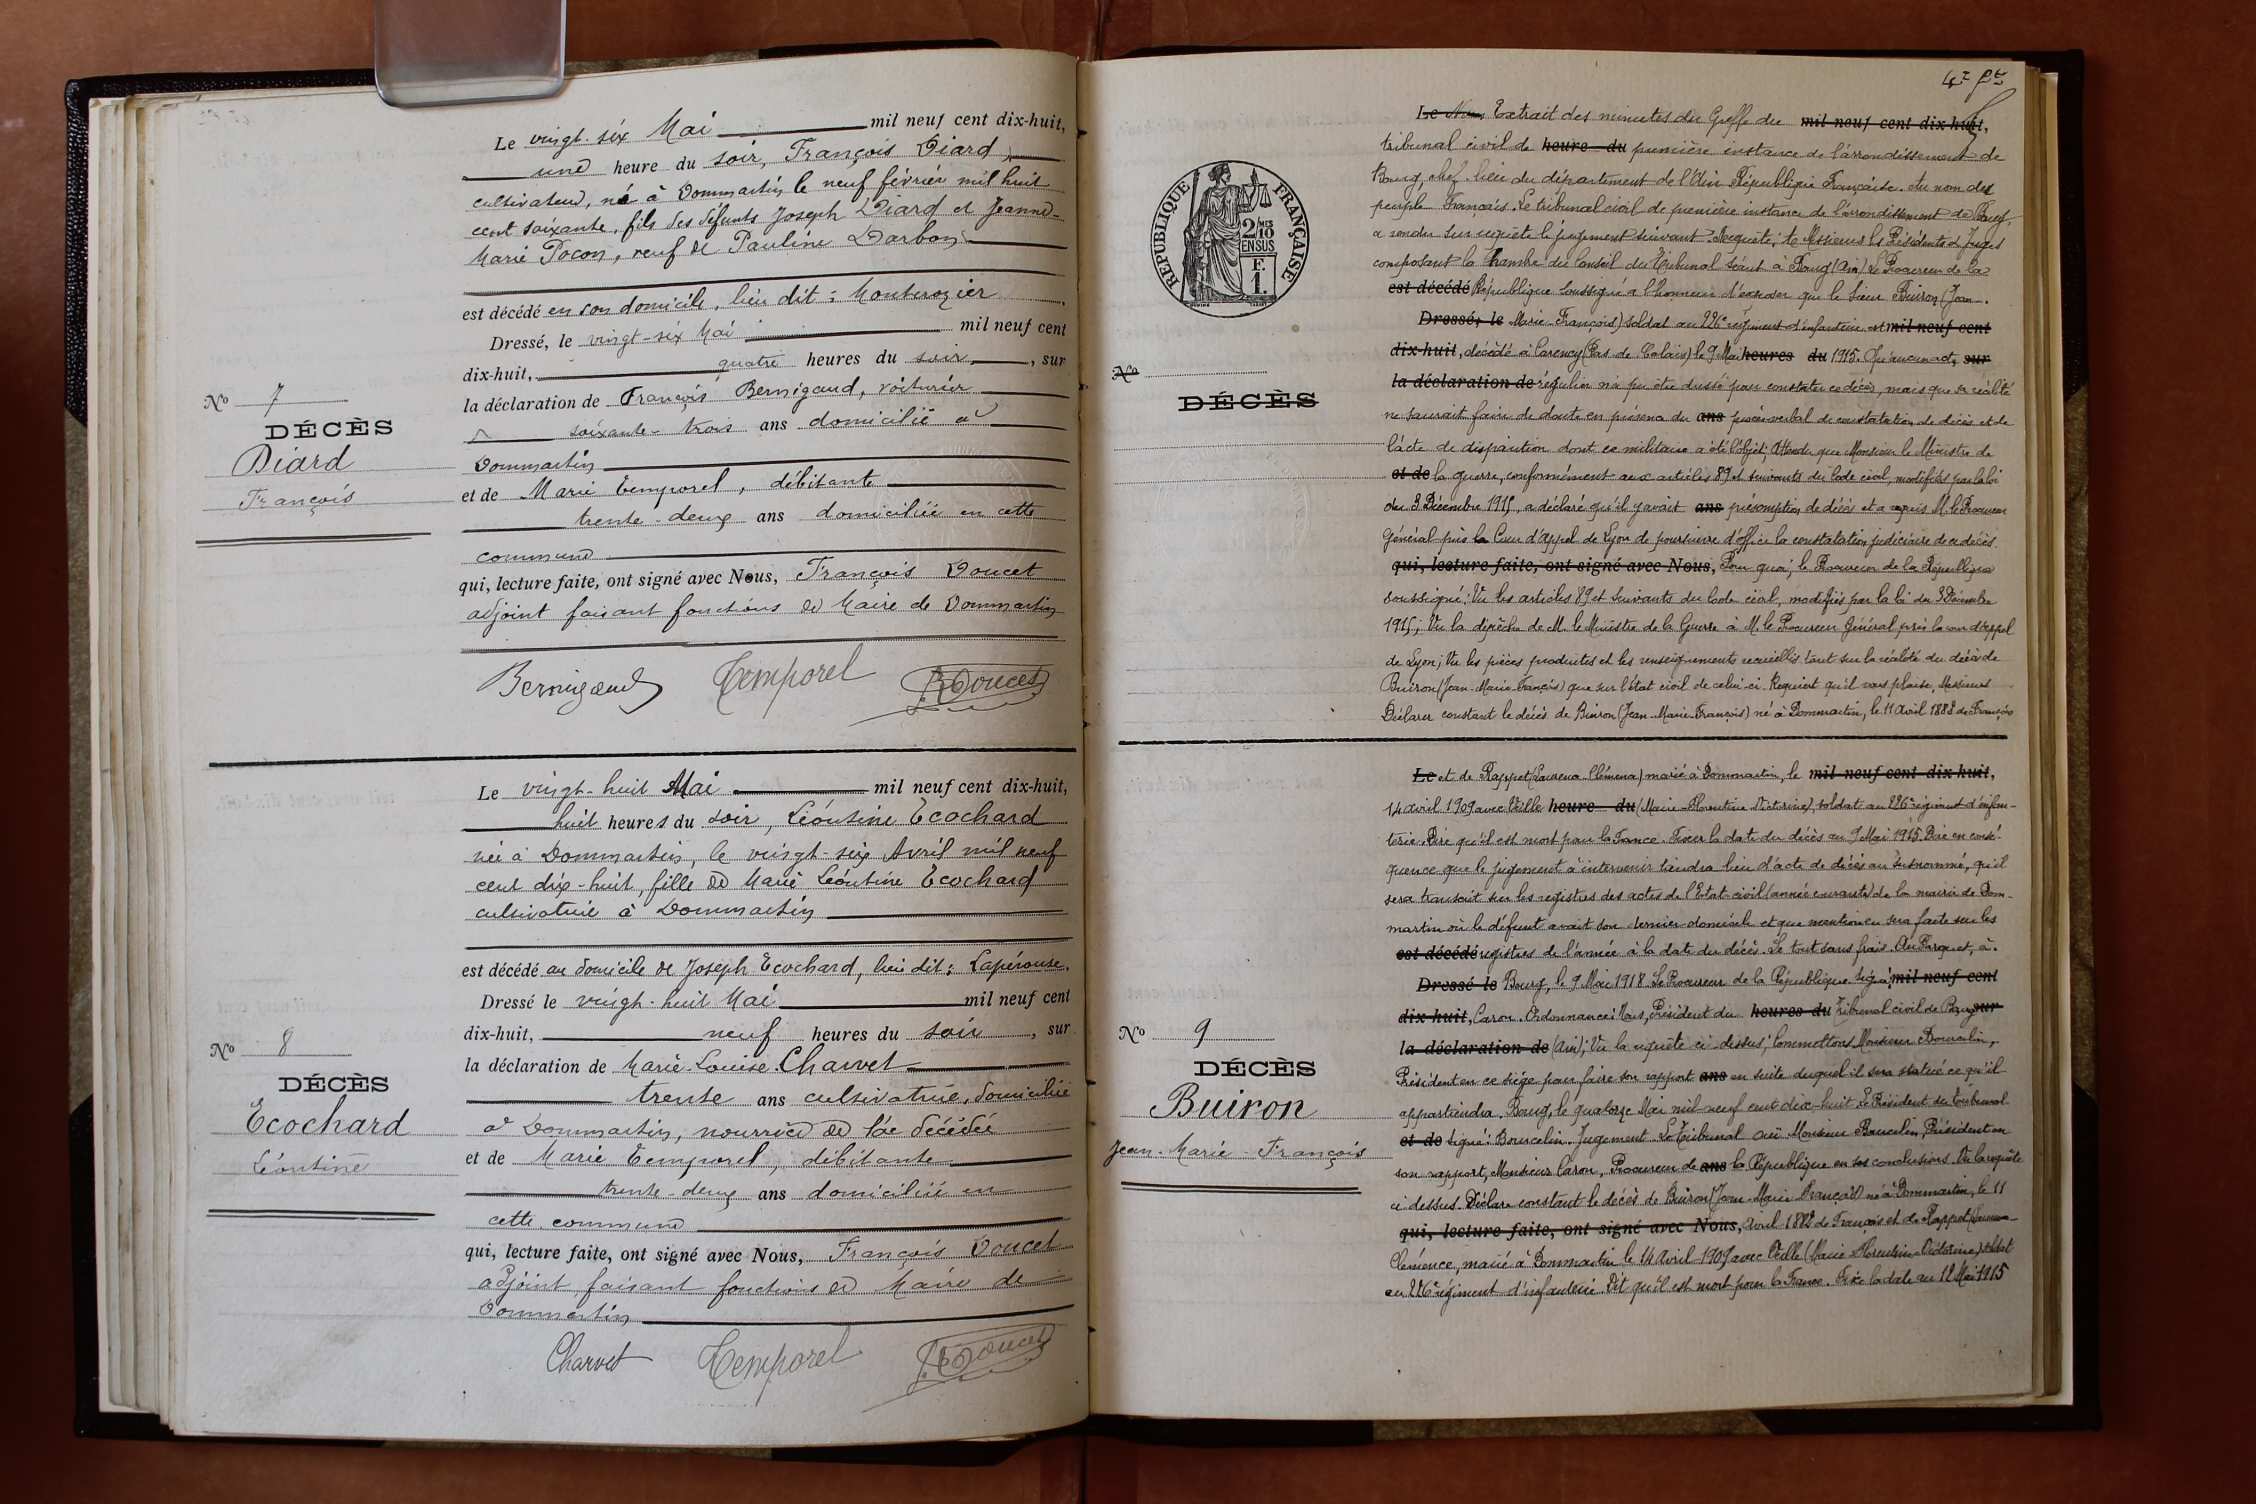 Le vingt-six Mai mil neuf cent dix-huit,
une heure du soir, François Diard,
cultivateur, né à Dommartin le neuf février mil huit
cent soixante, fils des défunts Joseph Diard et Jeanne-
Marie Pocon, veuf de Pauline Darbon
est décédé en son domicile, lieu dit : Montcrozier
Dressé, le vingt-six Mai mil neuf cent
dix-huit, quatre heures du soir, sur
la déclaration de François Bernigaud, voiturier
soixante-trois ans domicilié à
Dommartin
et de Marie Temporel, débitante
trente-deux ans domiciliée en cette
commune
qui, lecture faite, ont signé avec Nous, François Doucet
adjoint faisant fonctions de Maire de Dommartin
Bernigaud Temporel Doucet
No 7
DÉCÈS
Diard
François
Le vingt-huit Mai mil neuf cent dix-huit,
huit heures du soir, Léontine Ecochard
née à Dommartin, le vingt-six Avril mil neuf
cent dix-huit, fille de Marie Léontine Ecochard
cultivatrice à Dommartin
est décédé au domicile de Joseph Ecochard, lieu dit : Lapérouse.
Dressé le vingt-huit Mai mil neuf cent
dix-huit, neuf heures du soir, sur
la déclaration de Marie-Louise Charvet
trente ans cultivatrice, domiciliée
à Dommartin, nourrice de la décédée
et de Marie Temporel, débitante
trente-deux ans domiciliée en
cette commune
qui, lecture faite, ont signé avec Nous, François Doucet
adjoint faisant fonctions de Maire de
Dommartin
Charvet Temporel Doucet
No 8
DÉCÈS
Ecochard
Léontine
REPUBLIQUE FRANÇAISE
2/10 MES
EN SUS
F.
1.
No
DÉCÈS
Le Extrait des minutes du Greffe du mil neuf cent dix huit,
tribunal civil de heure du première instance de l'arrondissement de
Bourg, chef-lieu du département de l'Ain République Française. Au nom du
peuple Français. Le tribunal civil de première instance de l'arrondissement de Bourg
a rendu sur requête le jugement suivant. Requête; A Messieurs les Présidents et Juges
composant la Chambre du Conseil du Tribunal séant à Bourg (Ain) Le Procureur de la
est décédé République soussigné a l'honneur d'exposer que le sieur Buiron (Jean-
Dressé, le Marie-François) soldat au 226e régiment d'infanterie est mil neuf cent
dix-huit, décédé à Carency (Pas-de-Calais) le 9 Mai heures du 1915. Qu'aucun acte sur
la déclaration de régulier n'a pu être dressé pour constater ce décès, mais que sa réalité
ne saurait faire de doute en présence du ans procès-verbal de constatation de décès et de
l'acte de disparition dont ce militaire a été l'objet; Attendu que Monsieur le Ministre de
et de la guerre, conformément aux articles 89 et suivants du Code civil, modifiés par la loi
du 3 Décembre 1915, a déclaré qu'il y avait ans présomption de décès et a requis M. le Procureur
Général près la Cour d'appel de Lyon de poursuivre d'office la constatation judiciaire de ce décès.
qui, lecture faite, ont signé avec Nous, Pour quoi; le Procureur de la République
soussigné; Vu les articles 89 et suivants du Code civil, modifiés par la loi du 3 Décembre
1915; Vu la dépêche de M. le Ministre de la Guerre à M. le Procureur Général près la cour d'appel
de Lyon; Vu les pièces produites et les renseignements recueillis tant sur la réalité du décès de
Buiron (Jean-Marie-François) que sur l'état civil de celui-ci. Requiert qu'il vous plaise, Messieurs
Déclarer constant le décès de Buiron (Jean-Marie-François) né à Dommartin, le 11 Avril 1882 de François
Le et de Rappet (Laurence-Clémence) marié à Dommartin, le mil neuf cent dix huit,
14 avril 1909 avec Veille heure du (Marie-Florentine-Victorine), soldat au 226e régiment d'infan-
terie. Dire qu'il est mort pour la France. Fixer la date du décès au 9 Mai 1915. Dire en consé-
quence que le jugement à intervenir tiendra lieu d'acte de décès au susnommé, qu'il
sera transcrit sur les registres des actes de l'Etat-civil (année courante) de la mairie de Dom-
martin où le défunt avait son dernier domicile et que mention en sera faite sur les
est décédé registres de l'année à la date du décès. Le tout sans frais. Au Parquet, à
Dressé le Bourg, le 9 Mai 1918. Le Procureur de la République Signé: mil neuf cent
dix-huit, Caron. Ordonnance: Nous, Président du heures du Tribunal civil de Bourg sur
la déclaration de (Ain); Vu la requête ci-dessus; Commettons Monsieur Bourcelin,
Président en ce siège pour faire son rapport ans en suite duquel il sera statué ce qu'il
appartiendra. Bourg, le quatorze Mai mil neuf cent dix-huit. Le Président du Tribunal
et de Signé: Bourcelin. Jugement. Le Tribunal Ouï Monsieur Bourcelin, Président en
son rapport, Monsieur Caron, Procureur de ans la République en ses conclusions. Vu la requête
ci-dessus. Déclare constant le décès de Buiron (Jean-Marie François) né à Dommartin, le 11
qui, lecture faite, ont signé avec Nous, Avril 1882 de François et de Rappet
Clémence, marié à Dommartin le 14 Avril 1909 avec Veille (Marie Florentine-Victorine) soldat
au 226e régiment d'infanterie. Dit qu'il est mort pour la France. Fixe la date au 12 Mai 1915
No 9
DÉCÈS
Buiron
Jean-Marie-François